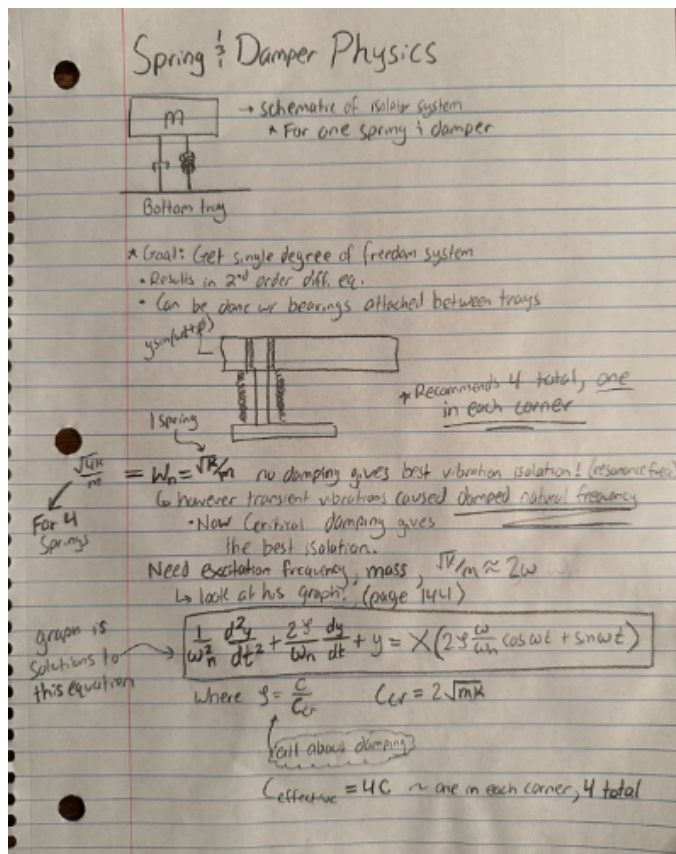 Spring & Damper Physics
m
→ schematic of isolator system
* For one spring & damper
Bottom tray
* Goal: Get single degree of freedom system
• Results in 2nd order diff. eq.
• Can be done w/ bearings attached between trays
ysin(ωt+φ)
* Recommends 4 total, one
in each corner
1 spring
√4K/m = Wn = √K/m no damping gives best vibration isolation! (resonance freq)
↳ however transient vibrations caused damped natural frequency
For 4
Springs
• Now Ccritical damping gives
the best isolation.
Need excitation frequency, mass, √K/m ≈ 2ω
↳ look at his graph! (page 144)
graph is
solutions to
this equation
1/ω²n d²y/dt² + 2ζ/ωn dy/dt + y = X(2ζ ω/ωn cosωt + sinωt)
where ζ = C/Ccr Ccr = 2√mk
all about damping
Ceffective = 4C ~ one in each corner, 4 total